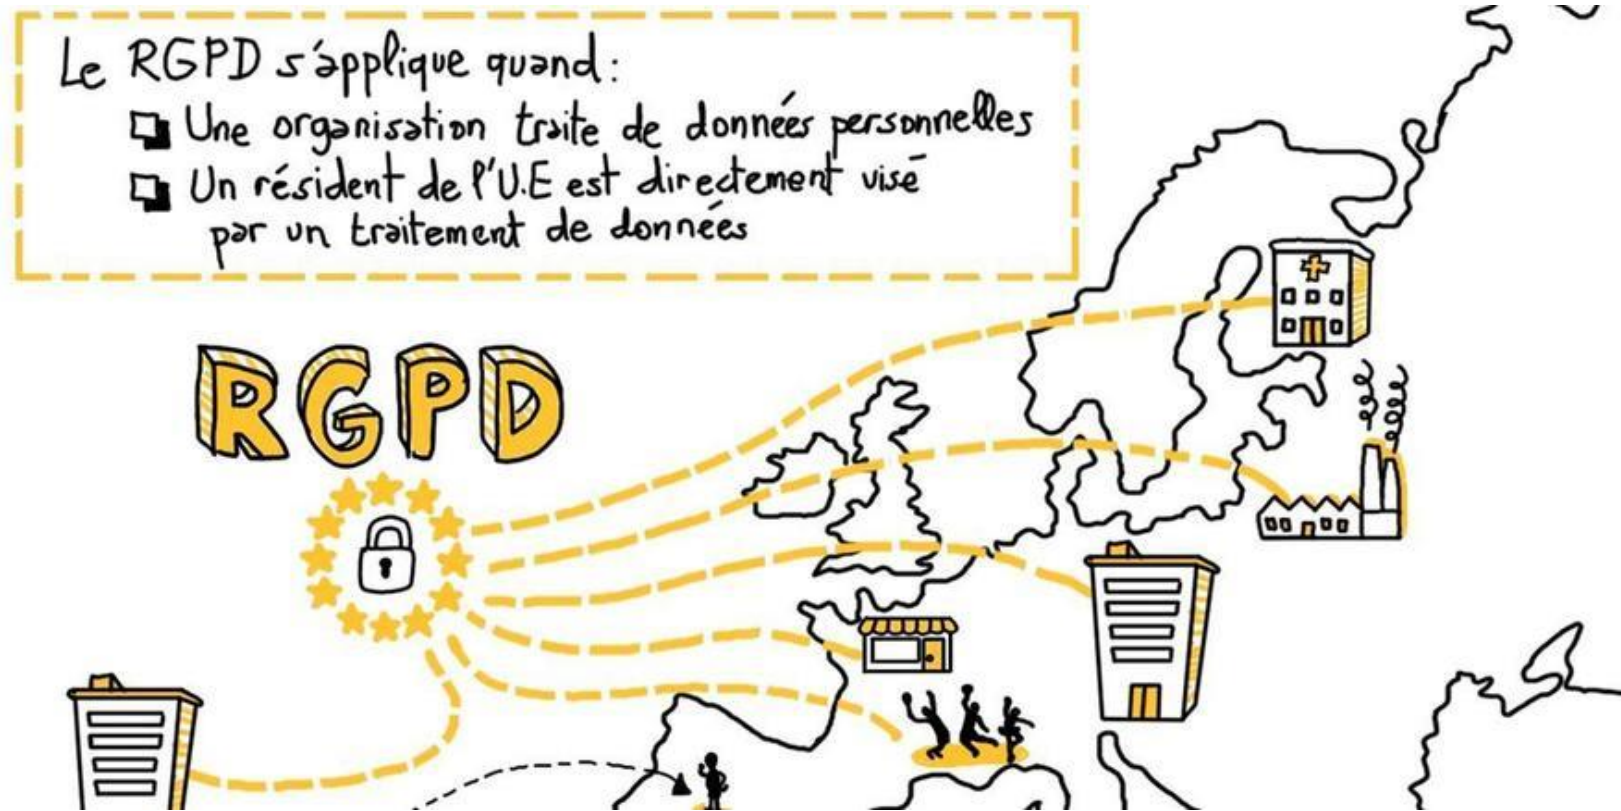 Le RGPD s'applique quand :
Une organisation traite de données personnelles
Un résident de l'U.E est directement visé
par un traitement de données
RGPD